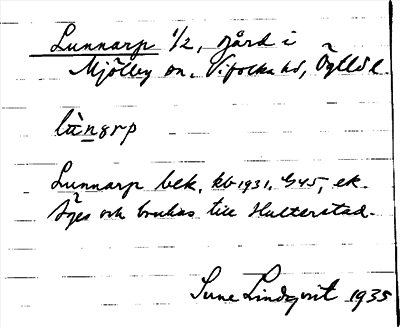 Lunnarp 1/2, gård i
Mjölby sn, Vifolka hd, Ögtl.
lùnarp
Lunnarp bek. kb 1931, ek.
äges och brukas till Hulterstad.
Sune Lindqvist 1935